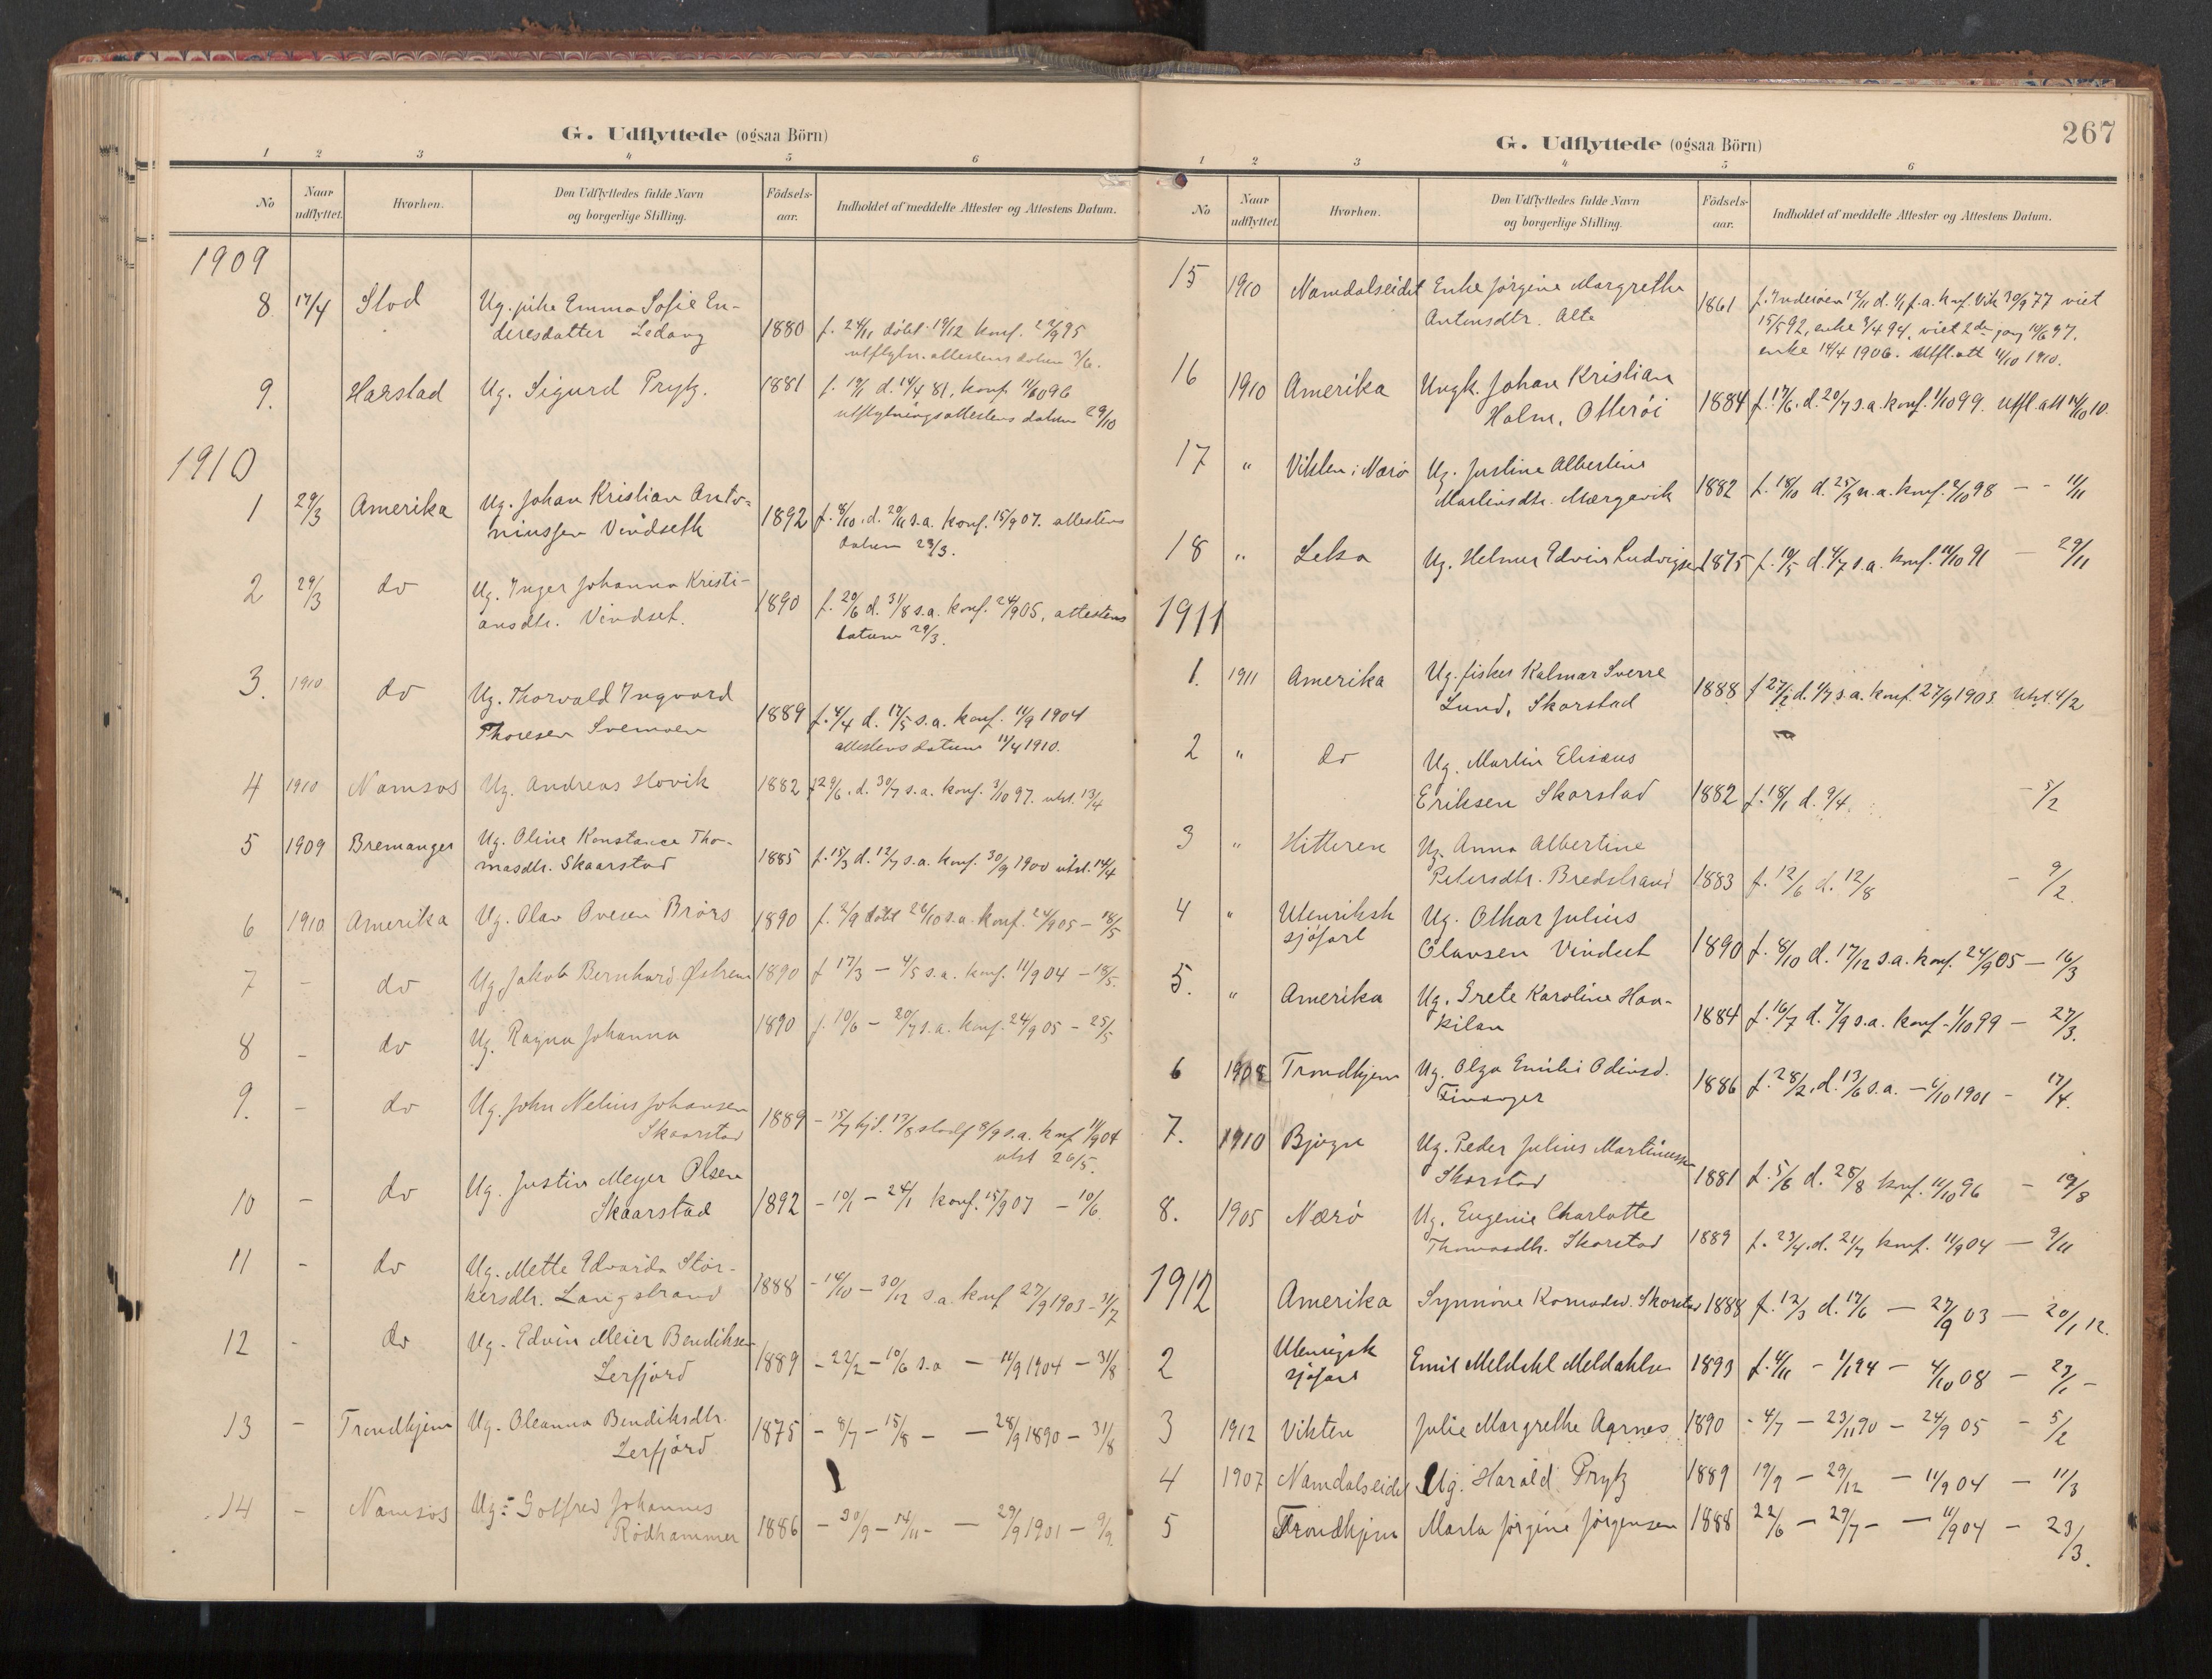 G. Udflyttede (ogsaa Börn)
1 2 3 4 5 6
No Naar udflyttet. Hvorhen. Den Udflyttedes fulde Navn og borgerlige Stilling. Födsels-aar. Indholdet af meddelte Attester og Attestens Datum.
1909
8 17/4 Stod Ug. pike Emma Sofie En-
deresdatter Ledang 1880 f. 24/11 döbt 19/12 konf. 22/9 95
utflytn. attestens datum 3/6.
9. Harstad Ug. Sigurd Prytz. 1881 f. 19/1 d. 14/4 81, konf. 11/10 96
utflytningsattestens datum 29/10
1910
1 29/3 Amerika Ug. Johan Kristian Anto-
niussen Vindseth 1892 f. 8/10. d. 20/11 s.a. konf. 15/9 07. attestens
datum 29/3.
2 29/3 do Ug. Inger Johanna Kristi-
ansdtr. Vindset. 1890 f. 20/6 d. 31/8 s.a. konf. 24/9 05, attestens
datum 29/3.
3. 1910 do Ug. Thorvald Ingvard
Thoresen Svemoen 1889 f. 4/4 d. 17/5 s.a. konf. 11/9 1904
attestens datum 11/4 1910.
4 1910 Namsos Ug. Andreas Hovik 1882 f 29/6. d. 30/7 s.a. konf. 3/10 97. utst. 13/4
5 1909 Bremanger Ug. Oline Konstance Tho-
masdtr. Skaarstad 1885 f. 15/3 d. 12/7 s.a. konf. 30/9 1900 utst. 14/4
6 1910 Amerika Ug. Olav Ovesen Brörs 1890 f. 2/9 döbt 26/10 s.a. konf. 24/9 05 – 18/5
7 – do Ug. Jakob Bernhard Østrem 1890 f 17/3 – 4/5 s.a. konf. 11/9 04 – 18/5.
8 – do Ug. Ragna Johanna 1890 f. 10/6 – 20/7 s.a. konf. 24/9 05 – 25/5
9. – do Ug. John Nelius Johansen
Skaarstad 1889 – 15/7 hjd. 13/8 stadf 8/9 s.a. konf 11/9 04
utst 26/5.
10 – do Ug. Justin Meyer Olsen
Skaarstad 1892 – 10/1 – 24/1 konf. 15/9 07 – 10/6.
11 – do Ug. Mette Edvarda Stör-
kersdtr. Langstrand 1888 – 14/10 – 30/12 s.a. konf 27/9 1903 – 31/7
12 – do Ug. Edvin Meier Bendiksen
Lerfjord 1889 – 22/2 – 10/6 s.a – 11/9 1904 – 31/8
13 – Trondhjem Ug. Oleanna Bendiksdtr.
Lerfjord 1875 – 8/7 – 15/8 – – 28/9 1890 – 31/8
14 – Namsos Ug. Gotfred Johannes
Rödhammer 1886 – 30/9 – 14/11 – – 29/9 1901 – 9/9.
267
G. Udflyttede (ogsaa Börn)
1 2 3 4 5 6
No Naar udflyttet. Hvorhen. Den Udflyttedes fulde Navn og borgerlige Stilling. Födsels-aar. Indholdet af meddelte Attester og Attestens Datum.
15 1910 Namdalseidet Enke Jørgine Margrethe
Antonsdtr. Alte 1861 f. Inderøen 12/11 d. 1/1 f.a. konf. Vik 30/9 77 viet
15/5 92, enke 3/4 94. viet 2den gang 14/6 97.
enke 14/4 1906. Utfl. att 11/10 1910.
16 1910 Amerika Ungk. Johan Kristian
Holm, Otterøi 1884 f. 17/6. d. 20/7 s.a. konf. 1/10 99. Utfl. att 14/10 10.
17 " Vikten i Nærö Ug. Justine Albertine
Martinsdtr. Mærgavik 1882 f. 18/10 d. 25/3 n.a. konf. 2/10 98 – – 11/11
18 " Leka Ug. Helmer Edvin Ludvigsen 1875 f. 19/5 d. 4/7 s.a. konf. 11/10 91 – 29/11
1911
1. 1911 Amerika Ug. fisker Kalmar Sverre
Lund, Skorstad 1888 f 27/2 d. 1/7 s.a. konf. 27/9 1903. Utst. 4/2
2 " do Ug. Martin Elisæus
Eriksen Skorstad 1882 f. 18/1 d. 9/4. – 5/2
3 " Hitteren Ug. Anna Albertine
Petersdtr. Bredstrand 1883 f. 12/6 d. 12/8 – 9/2.
4 " Utenriksk
sjöfart Ug. Othar Julius
Olausen Vindset 1890 f. 8/10 d. 17/12 s.a. konf. 24/9 05 – 16/3
5. " Amerika Ug. Grete Karoline Haa-
kilan 1884 f. 16/7 d. 7/9 s.a. konf. 1/10 99 – 27/3.
6 1908 Trondhjem Ug. Olga Emilie Odinsd.
Finanger 1886 f. 28/2. d. 13/6 s.a. – 6/10 1901 – 17/4.
7. 1910 Bjugn Ug. Peder Julius Martinussen
Skorstad 1881 f. 5/6 d. 28/8 konf. 11/10 96 – 19/8
8. 1905 Nærö Ug. Eugenie Charlotte
Thomasdtr. Skorstad 1889 f. 23/4. d. 21/7 konf. 11/9 04 – 9/11
1912
Amerika Synnöve Konradsd. Skorstad 1888 f. 12/3 d. 17/6 – 27/9 03 – 20/1 12.
2 Utenrigsk
sjöfart Emil Meldahl Meldahlsen 1893 f. 4/11 – 1/1 94 – 4/10 08 – 27/1 –
3 1912 Vikten Julie Margrethe Agrnes 1890 – 4/7 – 23/11 90 – 24/9 05 – 5/2
4 1907 Namdalseidet Ug. Harald Prytz 1889 19/9 – 29/12 – 11/9 04 – 11/3
5 Trondhjem Marta Jörgine Jörgensen 1888 22/6 – 29/7 – – 11/9 04 – 23/3.